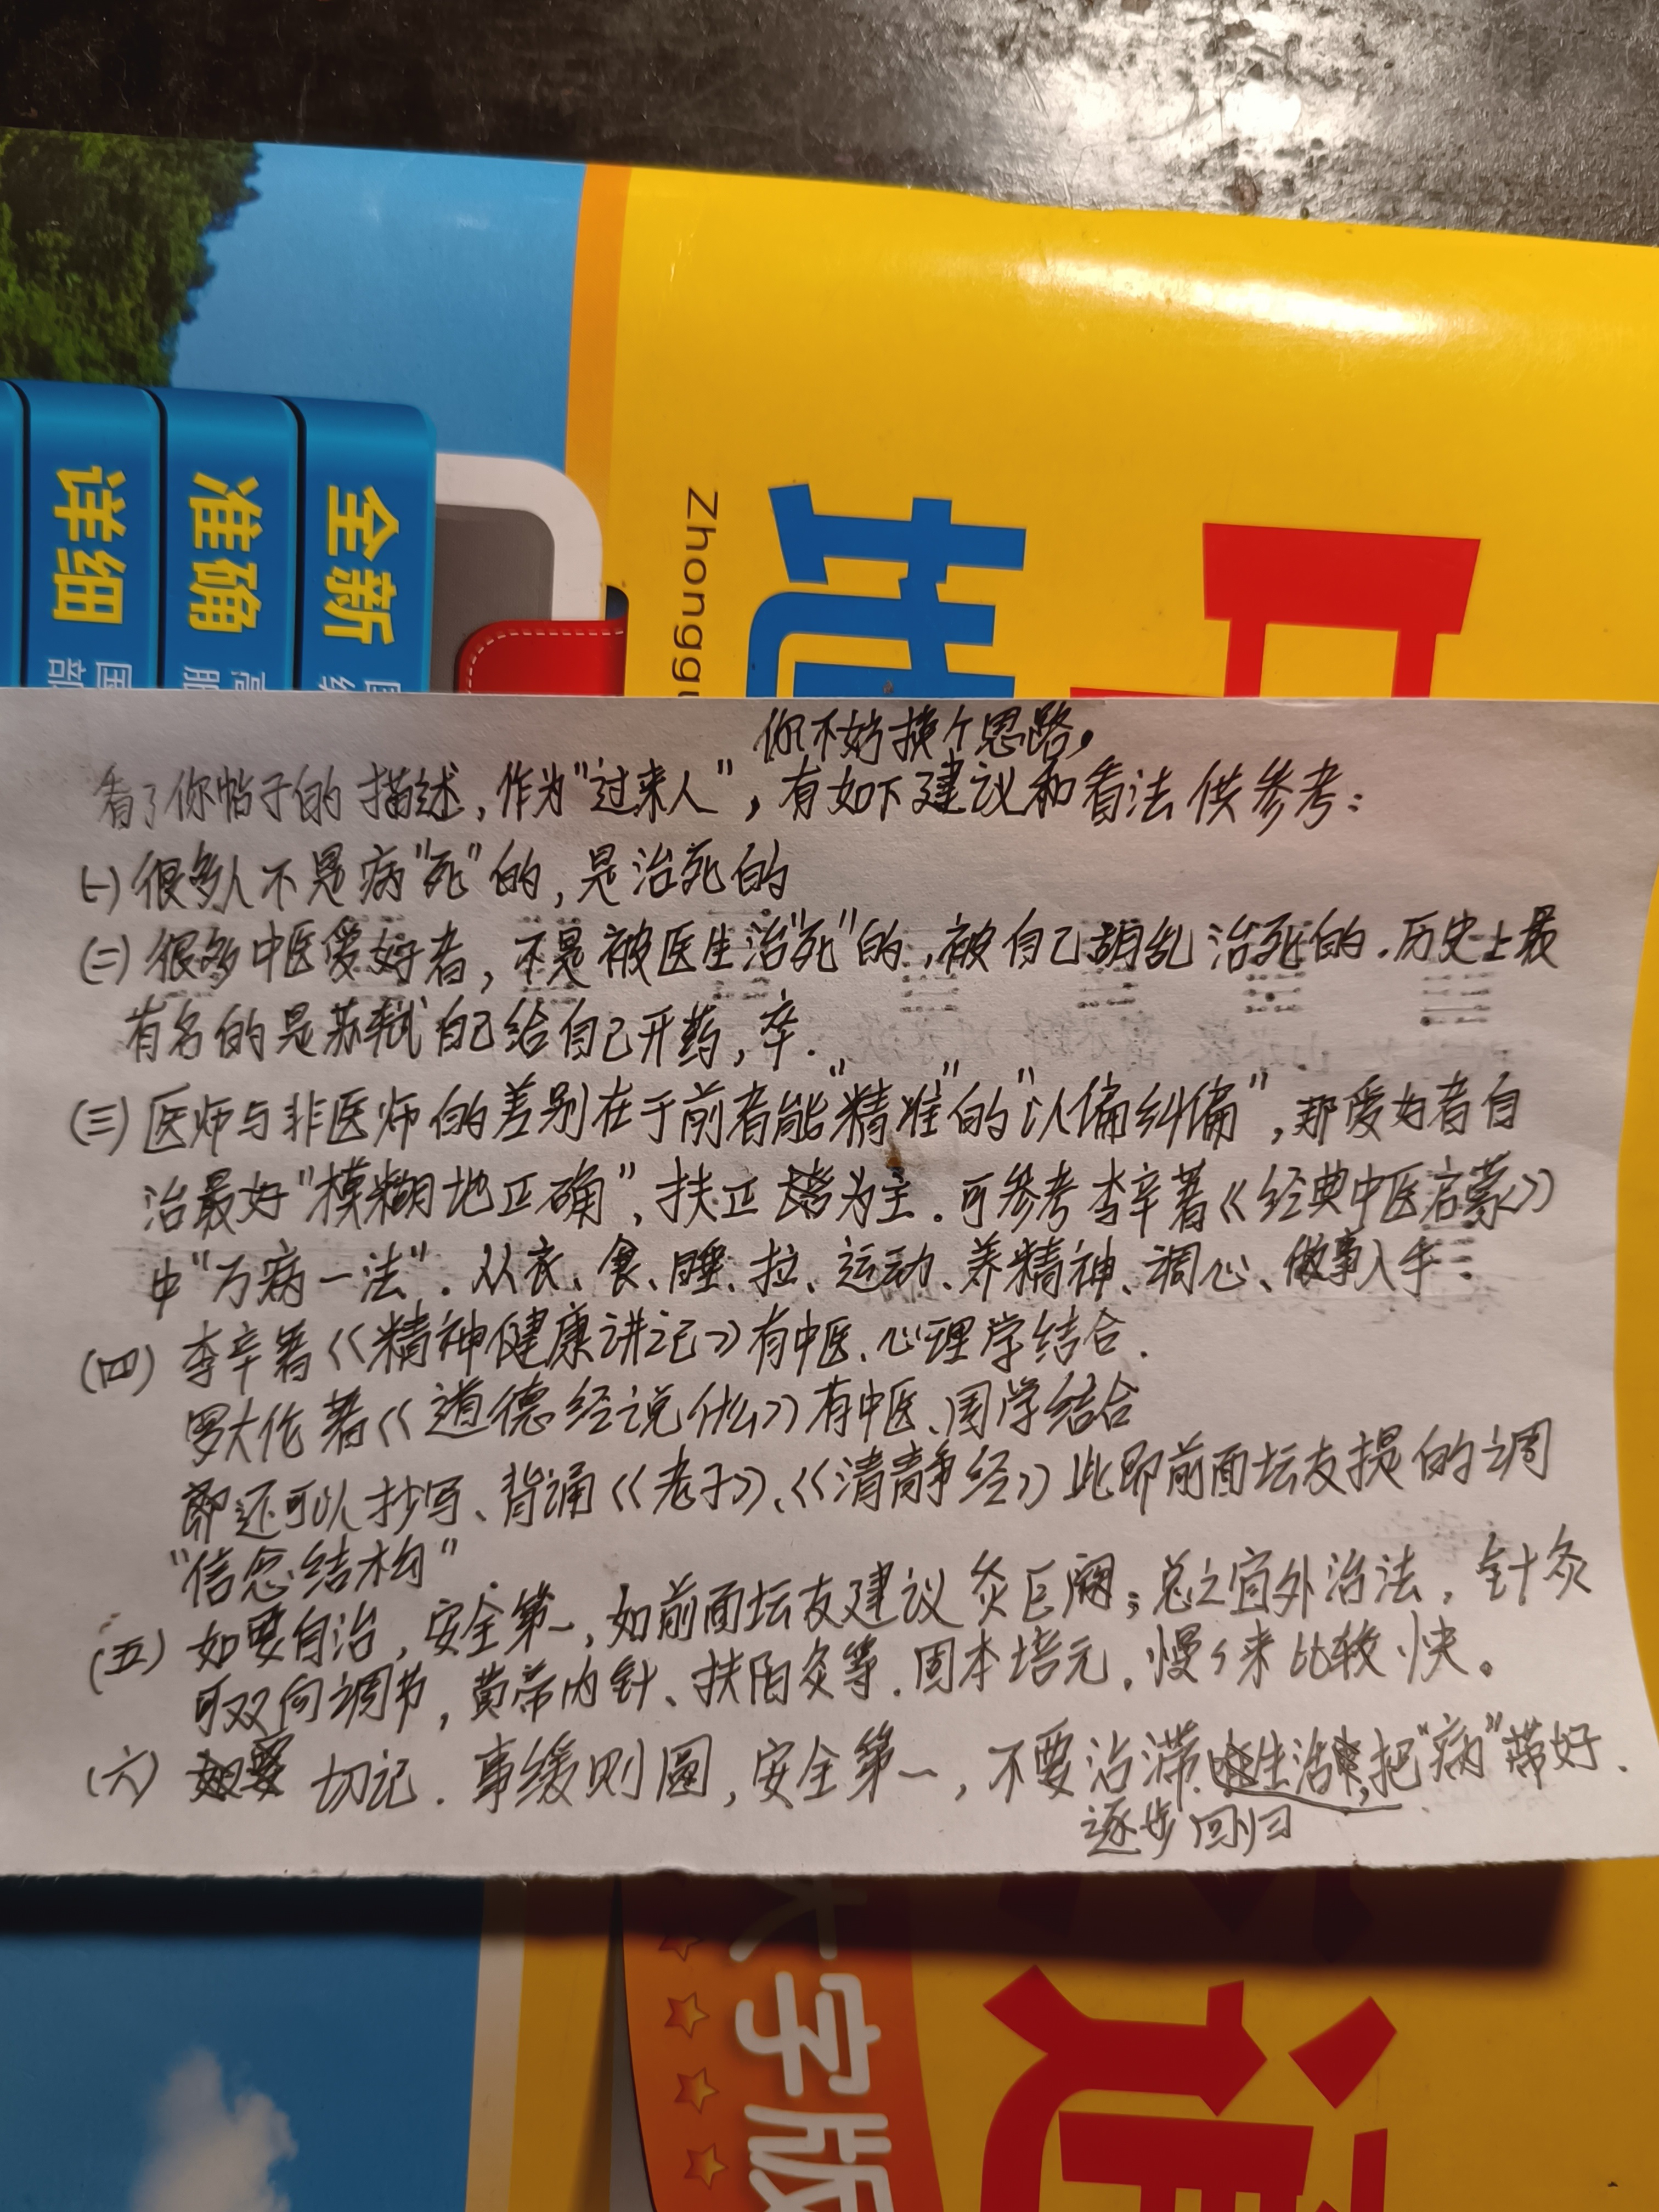 全新
准确
详细
Zhonggu
地
你不妨换个思路，
看了你帖子的描述，作为"过来人"，有如下建议和看法供参考：
(一) 很多人不是病"死"的，是治死的
(二) 很多中医爱好者，不是被医生治"死"的，被自己胡乱治死的．历史上最
有名的是苏轼自己给自己开药，卒．
(三) 医师与非医师的差别在于前者能"精准"的"以偏纠偏"，那爱好者自
治最好"模糊地正确"，扶正 为主．可参考李辛著《经典中医启蒙》
中"万病一法"．从衣、食、睡、拉、运动、养精神、调心、做事入手
(四) 李辛著《精神健康讲记》有中医、心理学结合．
罗大伦著《道德经说什么》有中医、国学结合
即还可以抄写、背诵《老子》、《清静经》此即前面坛友提的调
"信念结构"
(五) 如要自治，安全第一，如前面坛友建议灸巨阙；总之宜外治法，针灸
可双向调节，黄帝内针、扶阳灸等．固本培元．慢々来比较快。
(六) 切记．事缓则圆，安全第一，不要治滞．生活，把"病"带好．
逐步回归
大字版